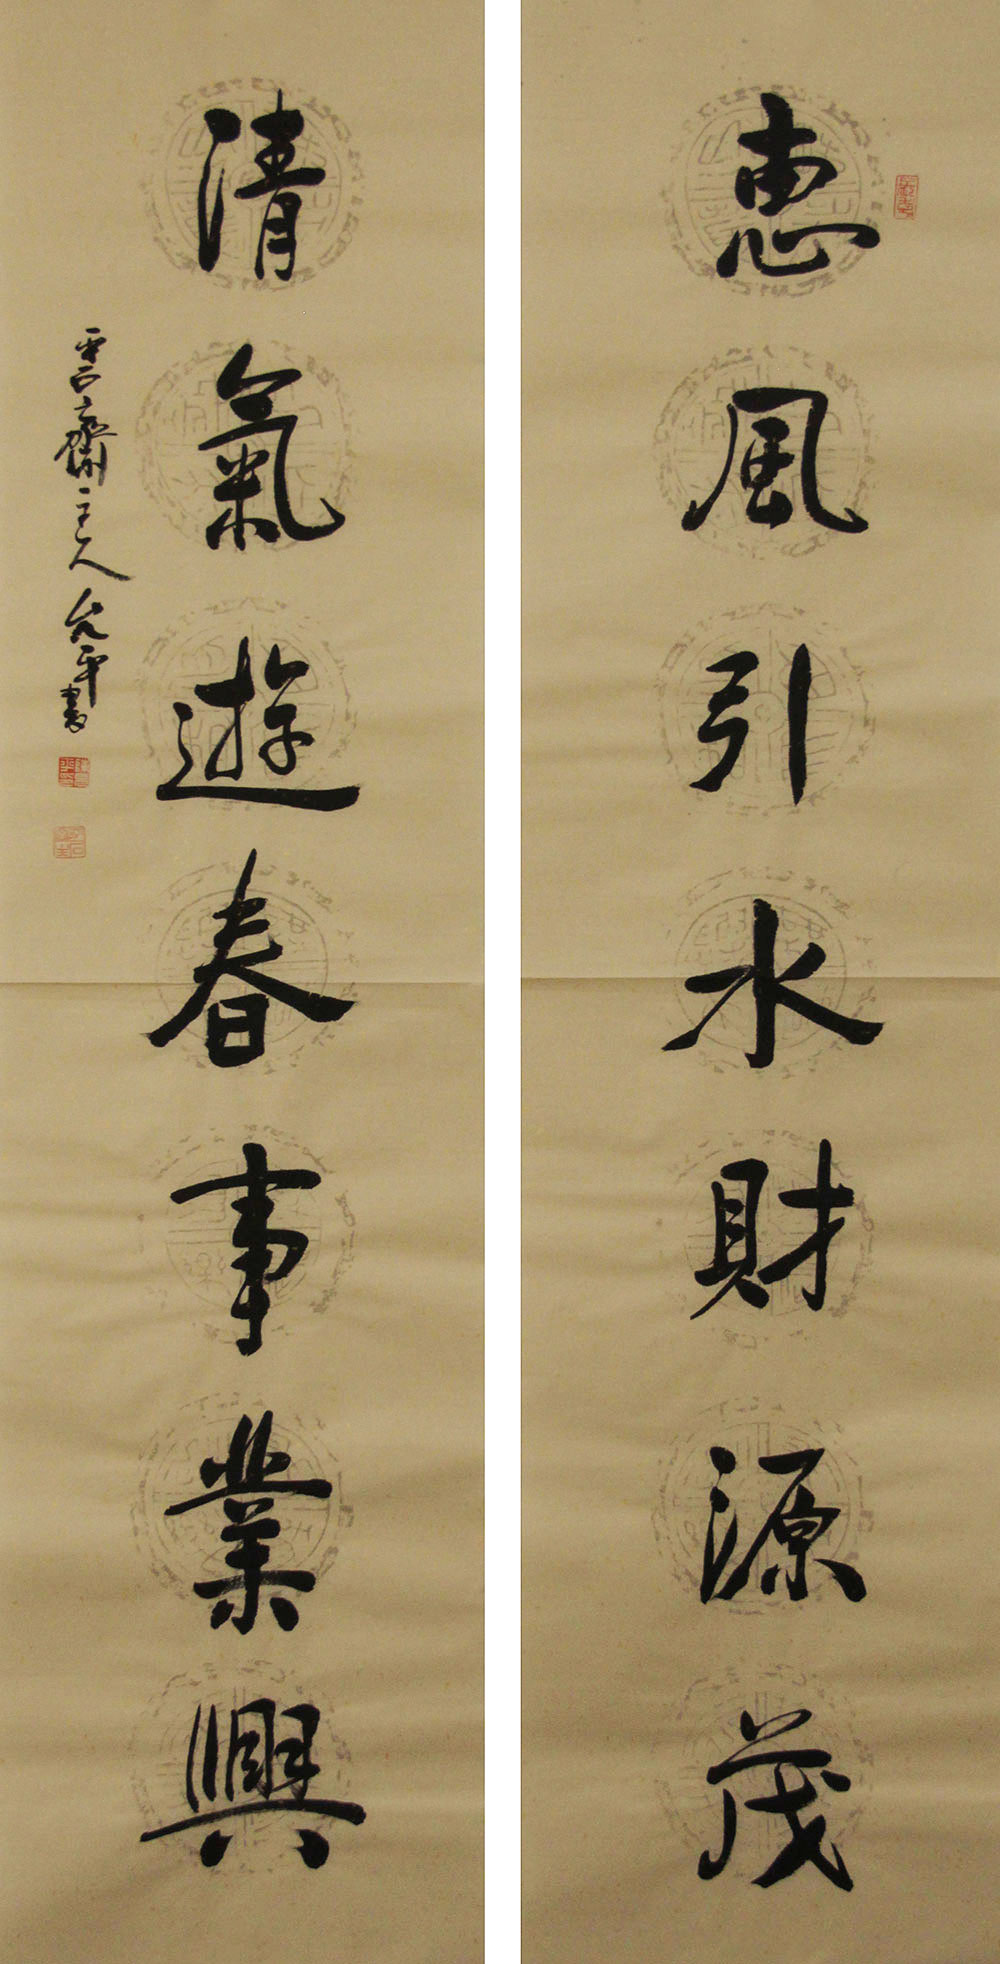 惠風引水財源茂
清氣遊春事業興
雲石齋主人允平書